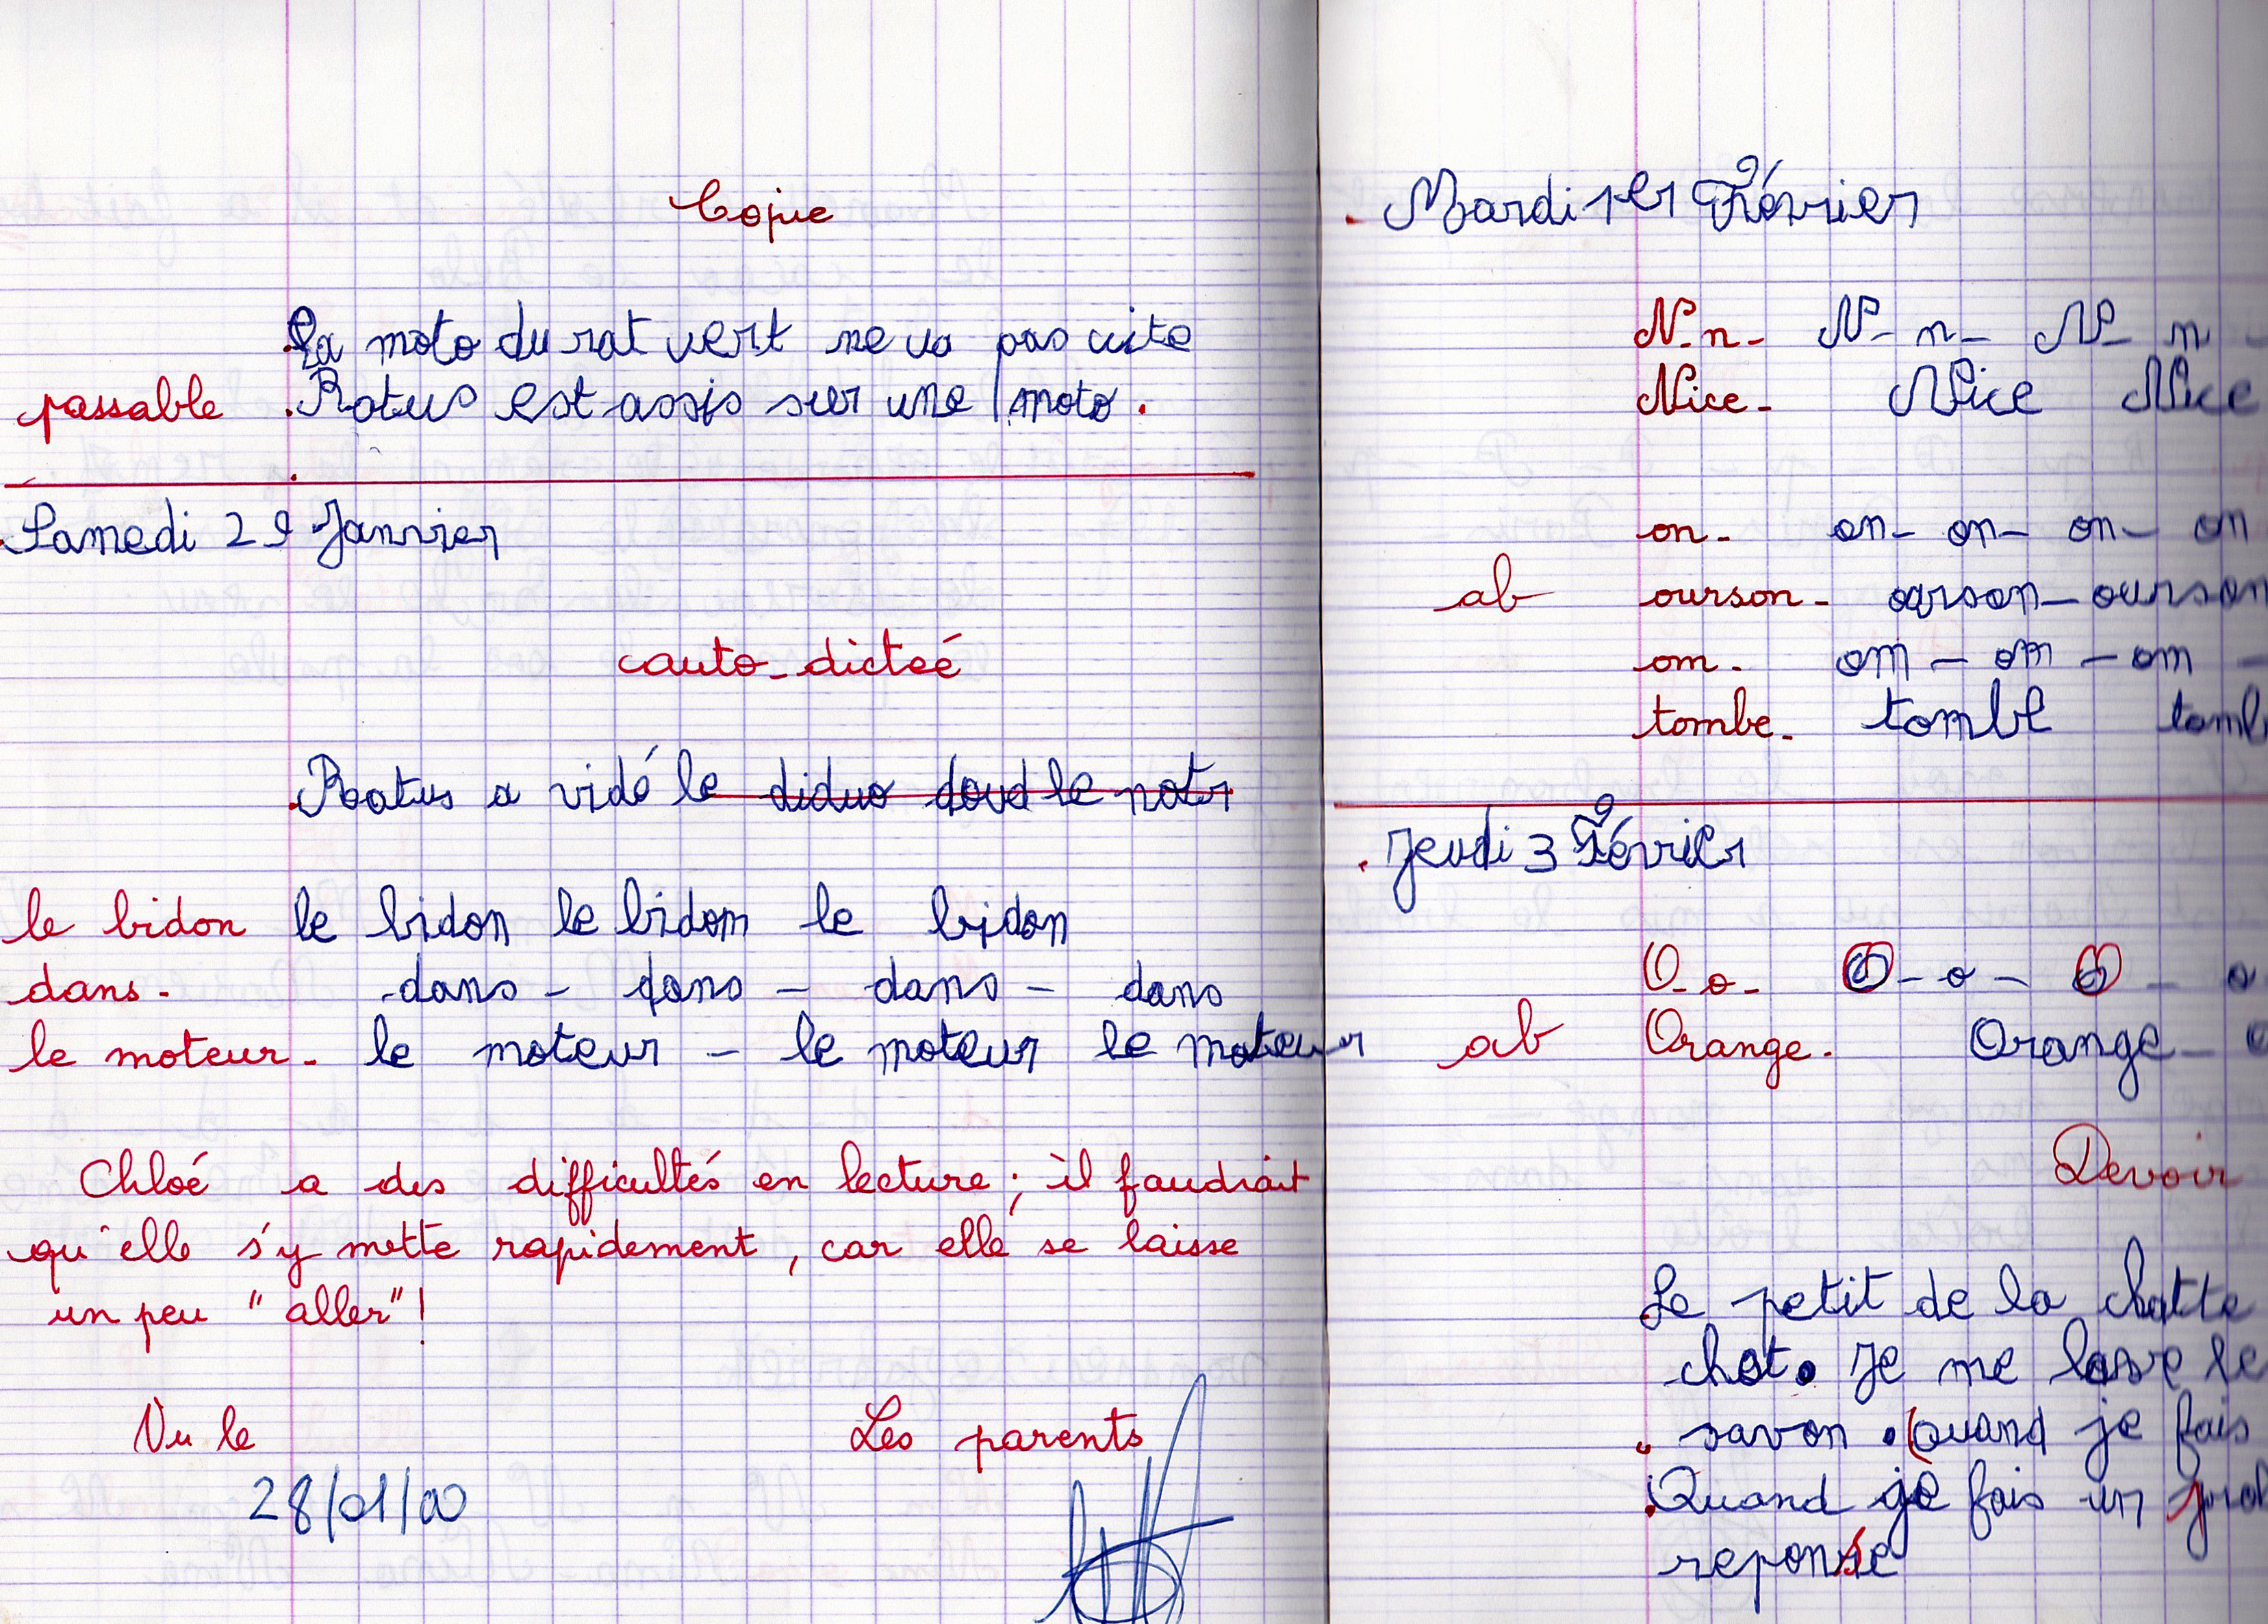 Copie
La moto du rat vert ne va pas vite
passable Ratus est assis sur une moto.
Samedi 29 Janvier
auto-dicteé
Ratus a vidé le diduo doud le notr
le bidon le bidon le bidom le bidon
dans. dans - dans - dans - dans
le moteur. le moteur - le moteur le moteur
Chloé a des difficultés en lecture ; il faudrait
qu'elle s'y mette rapidement, car elle se laisse
un peu "aller" !
Vu le Les parents
28/01/00
Mardi 1er Février
N-n- N-n- N- n -
Nice- Nice Nice
on- on- on- on- on
ab ourson- ourson- ourson
om- om - om - om -
tombe- tombe
Jeudi 3 Février
O-o- O-o- O - o
ab Orange. Orange-
Devoir
Le petit de la chatte
chat. Je me lave le
savon. Quand je fais
Quand je fais un
reponse